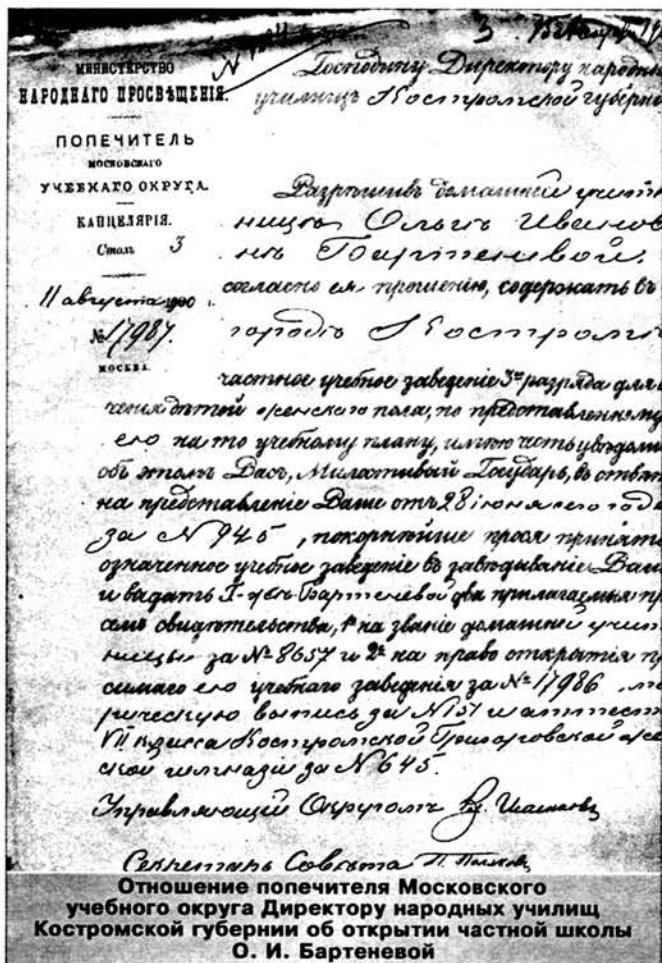 3
МИНИСТЕРСТВО
НАРОДНАГО ПРОСВѢЩЕНІЯ.
ПОПЕЧИТЕЛЬ
МОСКОВСКАГО
УЧЕБНАГО ОКРУГА.
КАНЦЕЛЯРІЯ.
Столъ 3
11 августа 1900
№ 17987.
МОСКВА.
Господину Директору народны
училищъ Костромской губерні
Разрѣшивъ домашней учит
ницѣ Ольгѣ Иванов
нѣ Бартеневой,
согласно ея прошенію, содержать въ
городѣ Костромѣ
частное учебное заведеніе 3го разряда для
ченія дѣтей женскаго пола, по представленному
ею на то учебному плану, имѣю честь увѣдоми
объ этомъ Васъ, Милостивый Государь, въ отвѣт
на представленіе Ваше отъ 28 іюня сего года
за № 945, покорнѣйше прося принять
означенное учебное заведеніе въ завѣдываніе Ваше
и выдать Г-жѣ Бартеневой два прилагаемыя пр
семъ свидѣтельства, 1е на званіе домашней учит
ницы за № 8657 и 2е на право открытія пр
симаго ею учебнаго заведенія за № 17986, ме
рическую выпись за № 151 и аттест
VII класса Костромской Григоровской же
ской гимназіи за № 645.
Управляющій Округомъ
Секретарь Совѣта
Отношение попечителя Московского
учебного округа Директору народных училищ
Костромской губернии об открытии частной школы
О. И. Бартеневой